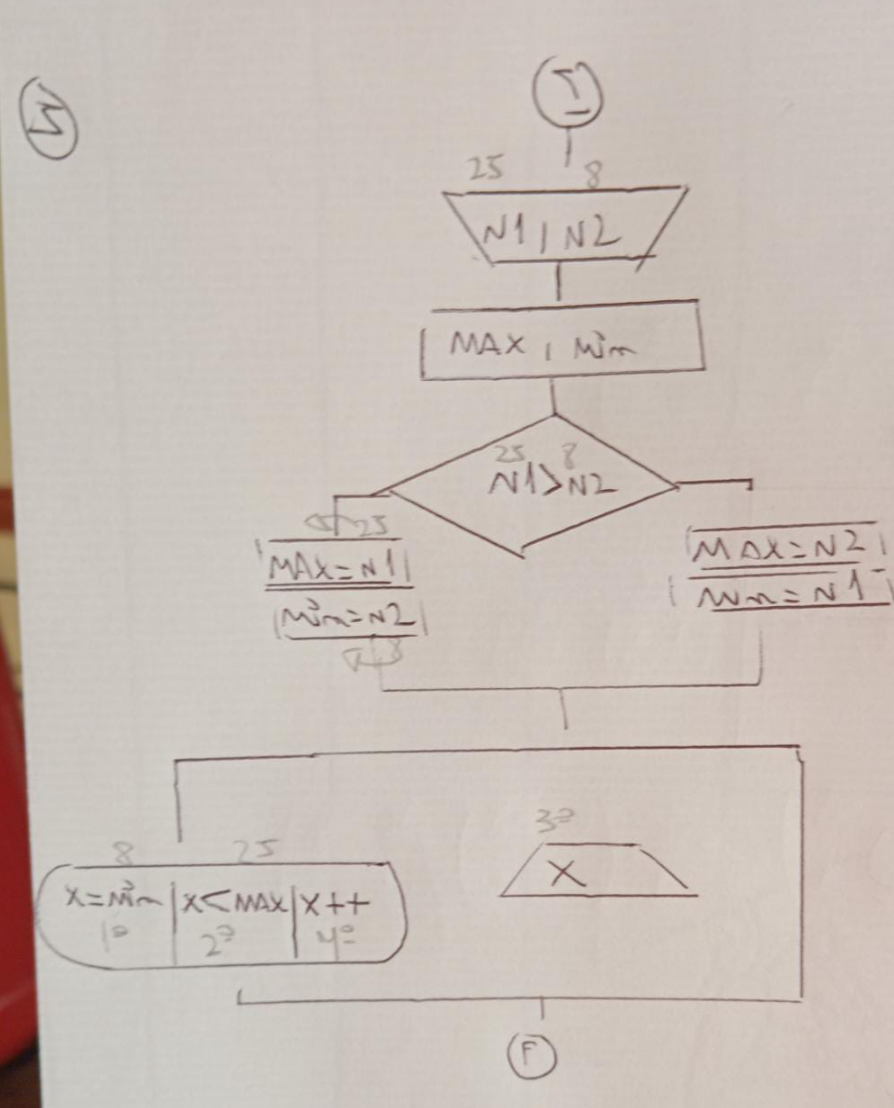 I
25 8
N1, N2
MAX, Min
25 8
N1>N2
25
MAX=N1
Min=N2
8
MAX=N2
Min=N1
8 25
X=Min X<MAX X++
1º 2º 4º
3º
X
F